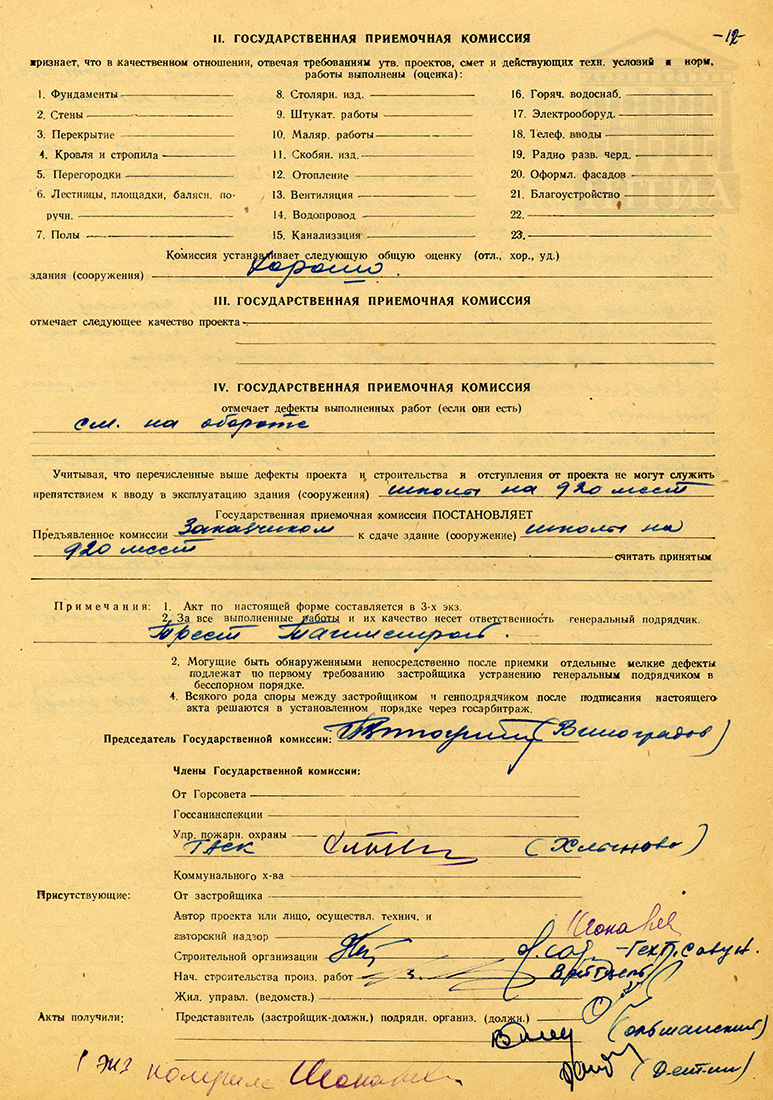 -12-
II. ГОСУДАРСТВЕННАЯ ПРИЕМОЧНАЯ КОМИССИЯ
признает, что в качественном отношении, отвечая требованиям утв. проектов, смет и действующих техн. условий и норм,
работы выполнены (оценка):
1. Фундаменты
2. Стены
3. Перекрытие
4. Кровля и стропила
5. Перегородки
6. Лестницы, площадки, балясн. по-
ручн.
7. Полы
8. Столярн. изд.
9. Штукат. работы
10. Маляр. работы
11. Скобян. изд.
12. Отопление
13. Вентиляция
14. Водопровод
15. Канализация
16. Горяч. водоснаб.
17. Электрооборуд.
18. Телеф. вводы
19. Радио разв. черд.
20. Оформл. фасадов
21. Благоустройство
22.
23.
Комиссия устанавливает следующую общую оценку (отл., хор., уд.)
здания (сооружения) хорошо.
III. ГОСУДАРСТВЕННАЯ ПРИЕМОЧНАЯ КОМИССИЯ
отмечает следующее качество проекта
IV. ГОСУДАРСТВЕННАЯ ПРИЕМОЧНАЯ КОМИССИЯ
отмечает дефекты выполненных работ (если они есть)
см. на обороте
Учитывая, что перечисленные выше дефекты проекта и строительства и отступления от проекта не могут служить
препятствием к вводу в эксплуатацию здания (сооружения) школы на 920 мест
Государственная приемочная комиссия ПОСТАНОВЛЯЕТ
Предъявленное комиссии Заказчиком к сдаче здание (сооружение) школы на
920 мест считать принятым
Примечания: 1. Акт по настоящей форме составляется в 3-х экз.
2. За все выполненные работы и их качество несет ответственность генеральный подрядчик.
Трест Тагилстрой.
2. Могущие быть обнаруженными непосредственно после приемки отдельные мелкие дефекты
подлежат по первому требованию застройщика устранению генеральным подрядчиком в
бесспорном порядке.
4. Всякого рода споры между застройщиком и генподрядчиком после подписания настоящего
акта решаются в установленном порядке через госарбитраж.
Председатель Государственной комиссии: (Виноградов)
Члены Государственной комиссии:
От Горсовета
Госсанинспекции
Упр. пожарн. охраны
ГАСК (Хлынова)
Коммунального х-ва
Присутствующие: От застройщика
Автор проекта или лицо, осуществл. технич. и
авторский надзор
Строительной организации
Нач. строительства произ. работ
Жил. управл. (ведомств.)
Акты получили: Представитель (застройщик-должн.) подрядн. организ. (должн.)
(Ольшанский)
1 экз получила